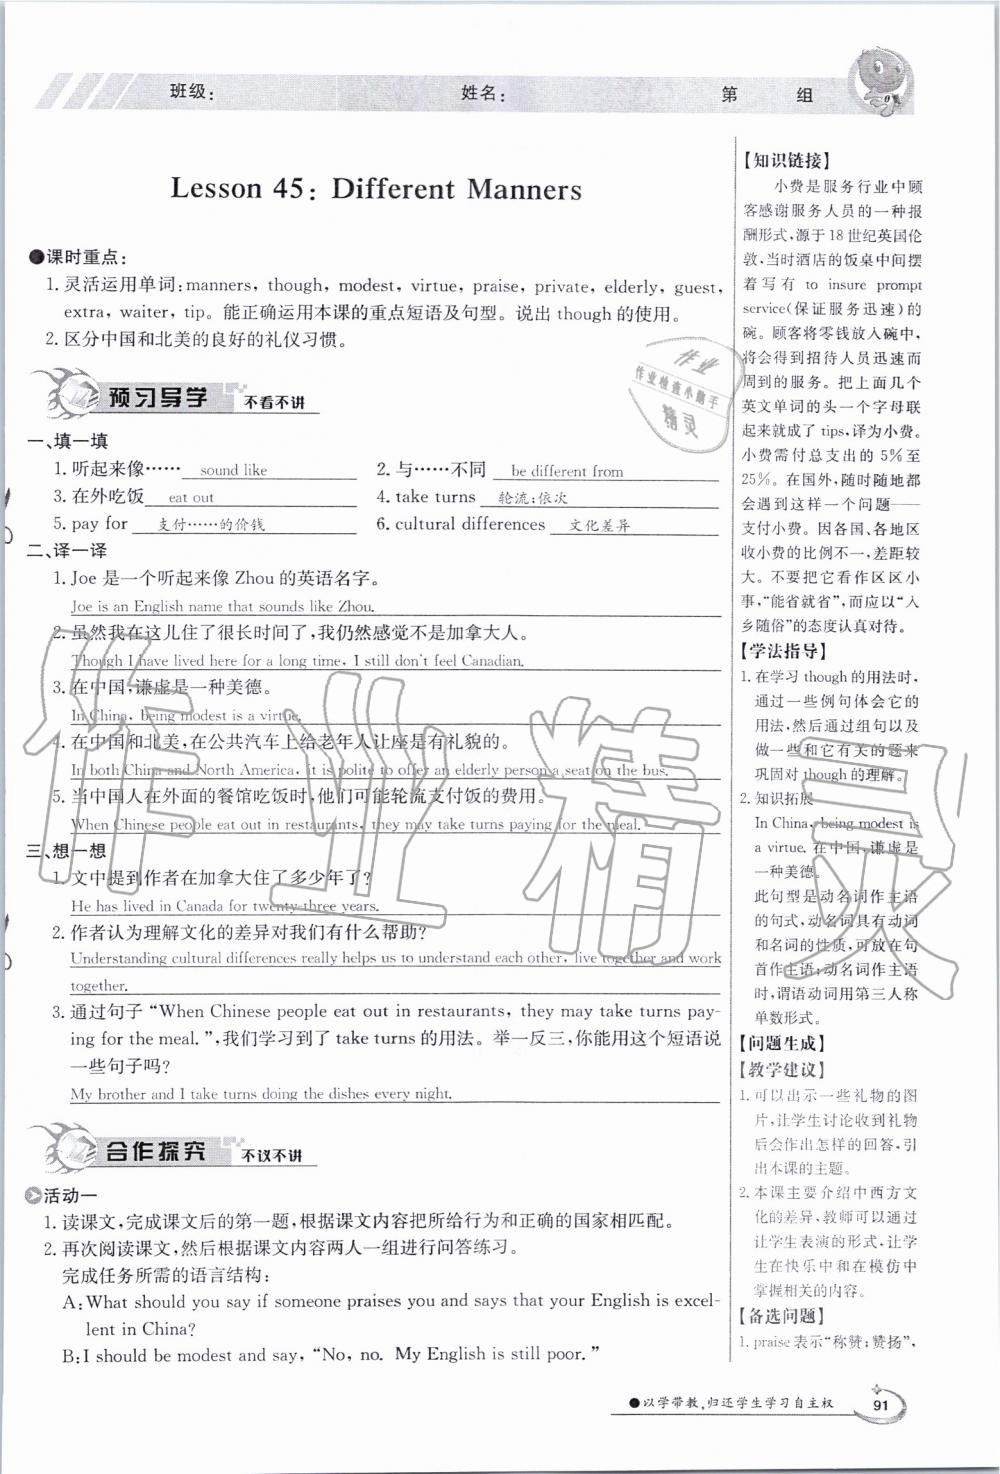 班级：
姓名：
第 组
Lesson 45: Different Manners
●课时重点：
1. 灵活运用单词:manners, though, modest, virtue, praise, private, elderly, guest,
extra, waiter, tip。能正确运用本课的重点短语及句型。说出 though 的使用。
2. 区分中国和北美的良好的礼仪习惯。
预习导学 不看不讲
一、填一填
1. 听起来像…… sound like
2. 与……不同 be different from
3. 在外吃饭 eat out
4. take turns 轮流;依次
5. pay for 支付……的价钱
6. cultural differences 文化差异
二、译一译
1. Joe 是一个听起来像 Zhou 的英语名字。
Joe is an English name that sounds like Zhou.
2. 虽然我在这儿住了很长时间了,我仍然感觉不是加拿大人。
Though I have lived here for a long time, I still don't feel Canadian.
3. 在中国,谦虚是一种美德。
In China, being modest is a virtue.
4. 在中国和北美,在公共汽车上给老年人让座是有礼貌的。
In both China and North America, it is polite to offer an elderly person a seat on the bus.
5. 当中国人在外面的餐馆吃饭时,他们可能轮流支付饭的费用。
When Chinese people eat out in restaurants, they may take turns paying for the meal.
三、想一想
1. 文中提到作者在加拿大住了多少年了?
He has lived in Canada for twenty-three years.
2. 作者认为理解文化的差异对我们有什么帮助?
Understanding cultural differences really helps us to understand each other, live together and work
together.
3. 通过句子 “When Chinese people eat out in restaurants, they may take turns pay-
ing for the meal. ”,我们学习到了 take turns 的用法。举一反三,你能用这个短语说
一些句子吗?
My brother and I take turns doing the dishes every night.
合作探究 不议不讲
活动一
1. 读课文,完成课文后的第一题,根据课文内容把所给行为和正确的国家相匹配。
2. 再次阅读课文,然后根据课文内容两人一组进行问答练习。
完成任务所需的语言结构:
A:What should you say if someone praises you and says that your English is excel-
lent in China?
B:I should be modest and say, “No, no. My English is still poor. ”
【知识链接】
小费是服务行业中顾
客感谢服务人员的一种报
酬形式,源于 18 世纪英国伦
敦,当时酒店的饭桌中间摆
着写有 to insure prompt
service(保证服务迅速)的
碗。顾客将零钱放入碗中,
将会得到招待人员迅速而
周到的服务。把上面几个
英文单词的头一个字母联
起来就成了 tips,译为小费。
小费需付总支出的 5%至
25%。在国外,随时随地都
会遇到这样一个问题——
支付小费。因各国、各地区
收小费的比例不一,差距较
大。不要把它看作区区小
事,“能省就省”,而应以“入
乡随俗”的态度认真对待。
【学法指导】
1. 在学习 though 的用法时,
通过一些例句体会它的
用法,然后通过组句以及
做一些和它有关的题来
巩固对 though 的理解。
2. 知识拓展
In China, being modest is
a virtue. 在中国,谦虚是
一种美德。
此句型是动名词作主语
的句式,动名词具有动词
和名词的性质,可放在句
首作主语;动名词作主语
时,谓语动词用第三人称
单数形式。
【问题生成】
【教学建议】
1. 可以出示一些礼物的图
片,让学生讨论收到礼物
后会作出怎样的回答,引
出本课的主题。
2. 本课主要介绍中西方文
化的差异,教师可以通过
让学生表演的形式,让学
生在快乐中和在模仿中
掌握相关的内容。
【备选问题】
1. praise 表示“称赞;赞扬”,
●以学带教,归还学生学习自主权
91
作业
作业检查小助手
精灵
作业精灵